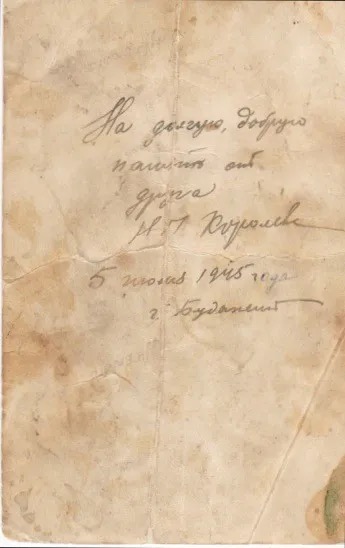 На долгую, добрую
память от
друга
Н Г Королёв
5 июля 1945 года
г. Будапешт